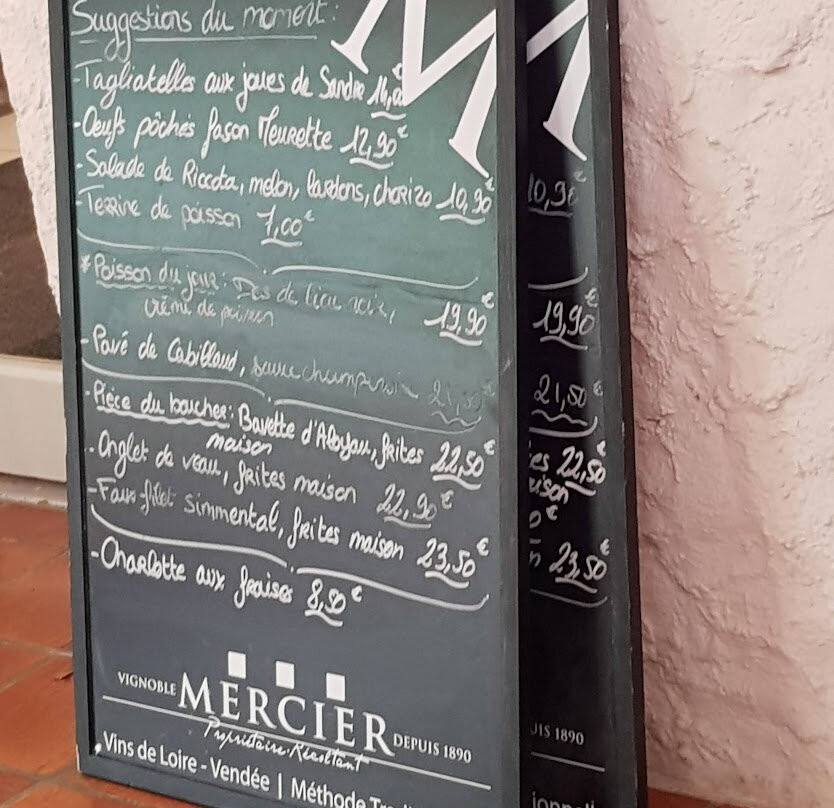 Suggestions du moment:
M
-Tagliatelles aux joues de Sandre 14,
-Oeufs pôchés fason Meurette 12,90€
-Salade de Riccota, melon, lardons, chorizo 10,90€
-Terrine de poisson 7,00€
*Poisson du jour: Dos de lieu noir, 19,90€
crème de poisson
-Pavé de Cabillaud, sauce 21,50€
-Pièce du boucher: Bavette d'Aloyau, frites 22,50€
maison
-Onglet de veau, frites maison 22,90€
-Faux-filet Simmental, frites maison 23,50€
-Charlotte aux fraises 8,50€
VIGNOBLE MERCIER DEPUIS 1890
Propriétaire-Récoltant
Vins de Loire - Vendée | Méthode
10,90
19,90€
21,50€
es 22,50€
aison
0€
n 23,50€
UIS 1890